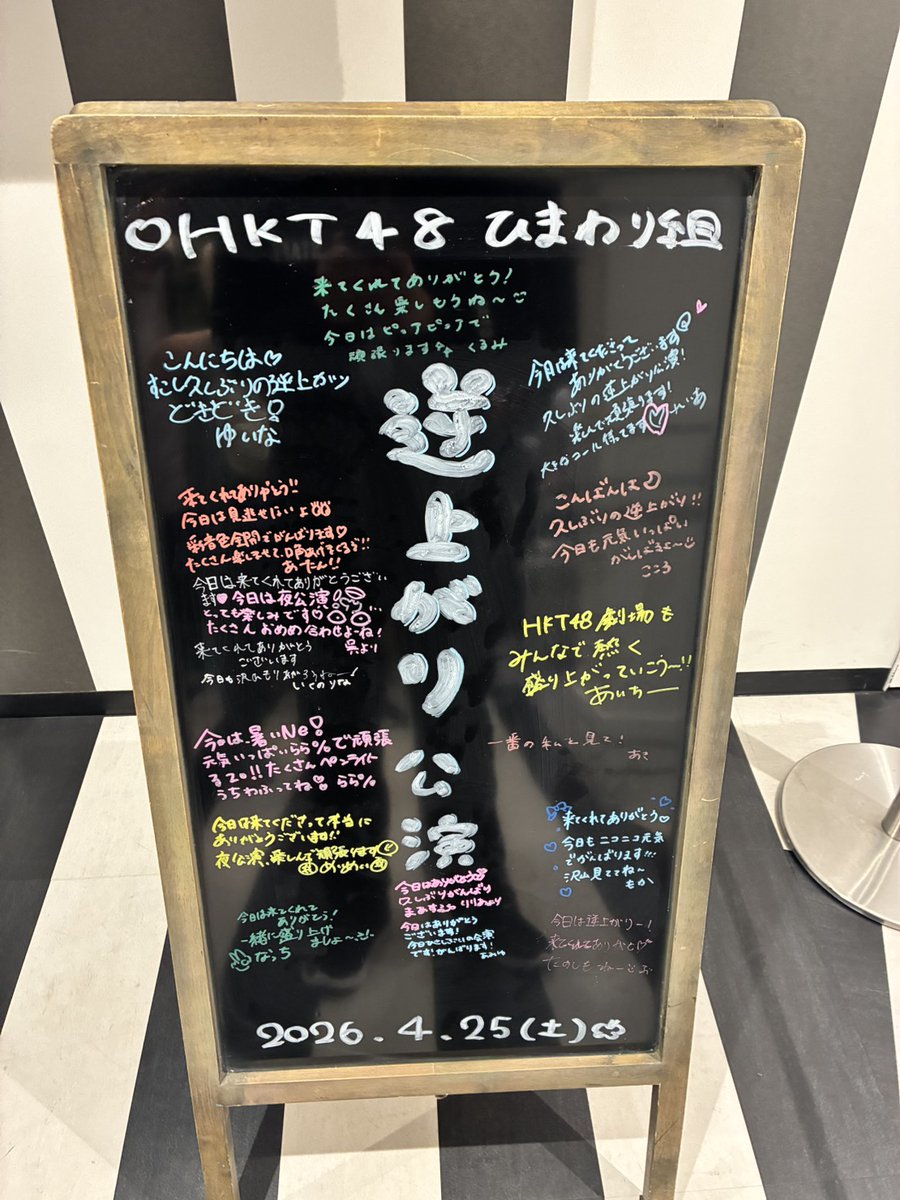 ♡HKT48 ひまわり組
来てくれてありがとう!
たくさん楽しもうね〜
今日はピュアピュアで
頑張ります くるみ
こんにちは♡
むし久しぶりの逆上がり
どきどき!
ゆいな
今日は来てくださって
ありがとうございます
久しぶりの逆上がり公演!
楽しんで頑張ります!
大きなコール待ってます
逆上がり公演
来てくれてありがとう!!
今日は見逃せないよ
彩着色全開でがんばります♡
たくさん楽しんで、
あーたん!!
こんばんは
久しぶりの逆上がり!!
今日も元気いっぱい
がんばるよ〜
こころ
今日は来てくれてありがとうござい
ます♥今日は夜公演
とっても楽しみです♡
たくさん おめめ 合わせよーね!
呉より
来てくれてありがとう
ございます
今日も沢山もりあがろうねー!
いくのりな
HKT48 劇場も
みんなで熱く
盛り上がっていこう〜!!
あいちー
今日は、暑いNe!
元気いっぱいらら%で頑張
するZO!!たくさんペンライト
うちわふってね! らら%
一番の私を見て!
あさ
今日は来てくださって本当に
ありがとうございます!!
夜公演、楽しんで頑張ります
めりめい
来てくれてありがとう♡
今日もニコニコ元気
でがんばります!!
沢山見ててね〜
もか
今日はありがとう
久しぶりがんばり
まぁすっ りりあより
今日は来てくれて
ありがとう!
一緒に盛り上げ
ましょ〜!
なっち
今日はありがとう
ございます!
今日ひさしぶりの公演
です!がんばります!
あおい
今日は逆上がりー!
来てくれてありがとう
たのしもねー
2026.4.25(土)